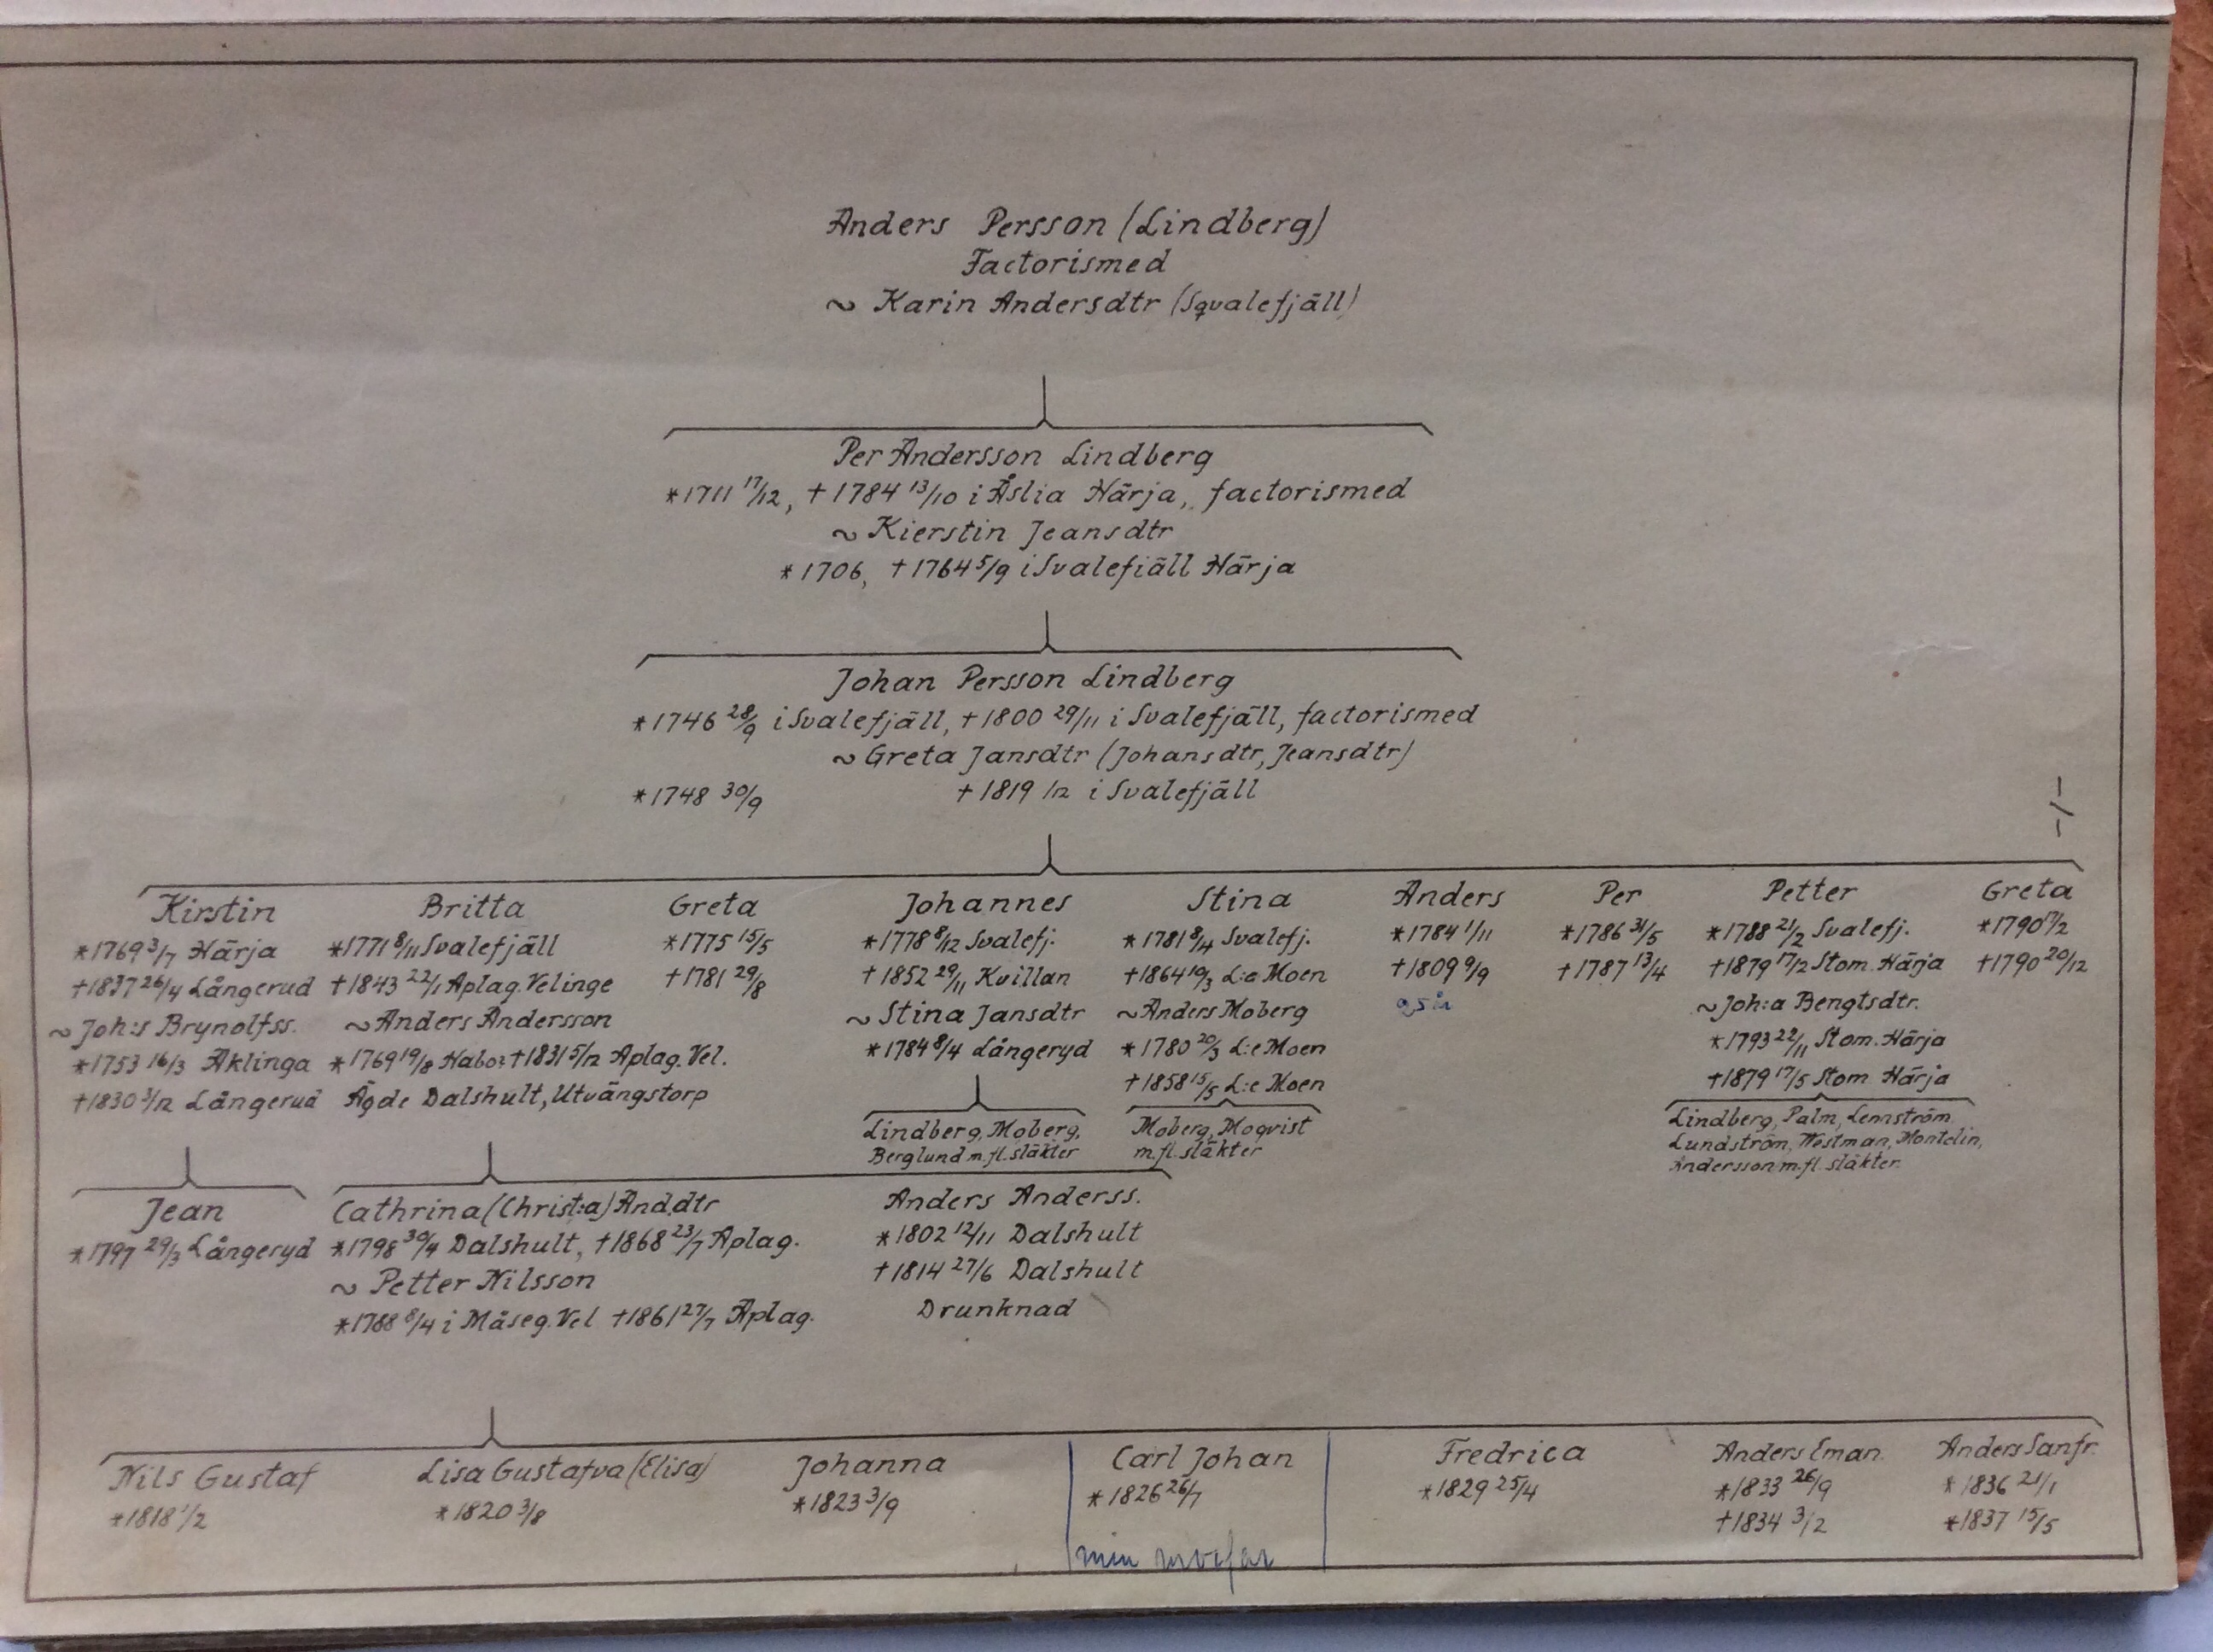 Anders Persson (Lindberg)
Factorismed
~ Karin Andersdtr (Sqvalefjäll)
Per Andersson Lindberg
*1711 17/12, †1784 13/10 i Åslia Härja, factorismed
~ Kierstin Jeansdtr
*1706, †1764 5/9 i Svalefiäll Härja
Johan Persson Lindberg
*1746 28/9 i Svalefjäll, †1800 29/11 i Svalefjäll, factorismed
~ Greta Jansdtr (Johansdtr, Jeansdtr)
*1748 30/9 †1819 /12 i Svalefjäll
-/-
Kirstin
*1769 3/7 Härja
†1837 26/4 Långerud
~ Joh:s Brynolfss.
*1753 16/3 Äklinga
†1830 3/12 Långerud
Britta
*1771 8/11 Svalefjäll
†1843 22/1 Aplag. Velinge
~ Anders Andersson
*1769 19/8 Habo: †1831 5/12 Aplag. Vel.
Ägde Dalshult, Utvängstorp
Greta
*1775 15/5
†1781 29/8
Johannes
*1778 8/12 Svalefj.
†1852 29/11 Kvillan
~ Stina Jansdtr
*1784 8/4 Långeryd
Lindberg, Moberg,
Berglund m.fl. släkter
Stina
*1781 8/4 Svalefj.
†1864 19/3 L:e Moen
~ Anders Moberg
*1780 20/3 L:e Moen
†1858 15/5 L:e Moen
Moberg, Moqvist
m.fl. släkter
Anders
*1784 1/11
†1809 9/9
25 år
Per
*1786 31/5
†1787 13/4
Petter
*1788 21/2 Svalefj.
†1879 17/2 Stom. Härja
~ Joh:a Bengtsdtr.
*1793 22/11 Stom. Härja
†1879 17/5 Stom Härja
Lindberg, Palm, Lennström
Lundström, Westman, Montelin,
Andersson m.fl. släkter.
Greta
*1790 17/2
†1790 20/12
Jean
*1797 29/3 Långeryd
Cathrina (Christ:a) And.dtr
*1798 30/4 Dalshult, †1868 23/7 Aplag.
~ Petter Nilsson
*1788 8/4 i Måseg. Vel †1861 27/7 Aplag.
Anders Anderss.
*1802 12/11 Dalshult
†1814 27/6 Dalshult
Drunknad
Nils Gustaf
*1818 1/2
Lisa Gustafva (Elisa)
*1820 3/8
Johanna
*1823 3/9
Carl Johan
*1826 26/7
min morfar
Fredrica
*1829 25/4
Anders Eman.
*1833 26/9
†1834 3/2
Anders Sanfr.
*1836 21/1
*1837 15/5